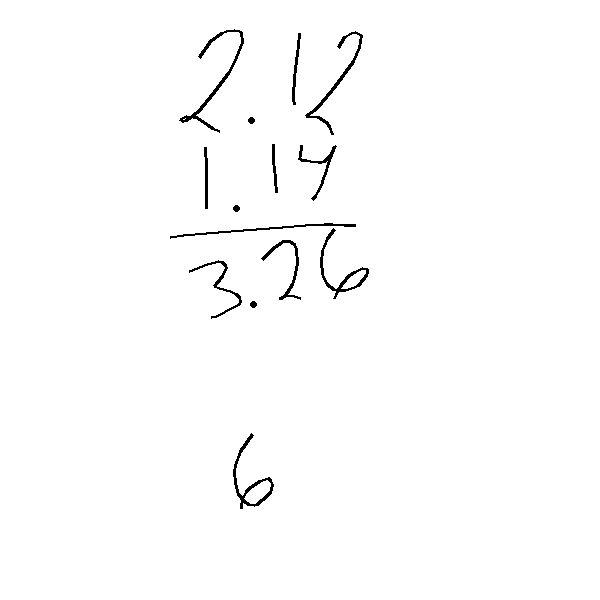 2.12
1.14
3.26
6